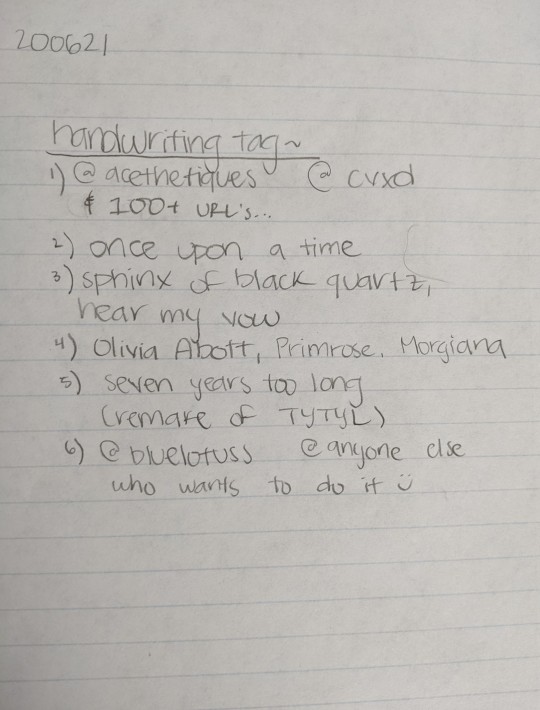 200621
handwriting tag~
1) @ acethetiques @ cvxd
& 100+ URL's...
2) once upon a time
3) sphinx of black quartz,
hear my vow
4) Olivia Abott, Primrose, Morgiana
5) seven years too long
(remake of TYTYL)
6) @ bluelotuss @ anyone else
who wants to do it ü